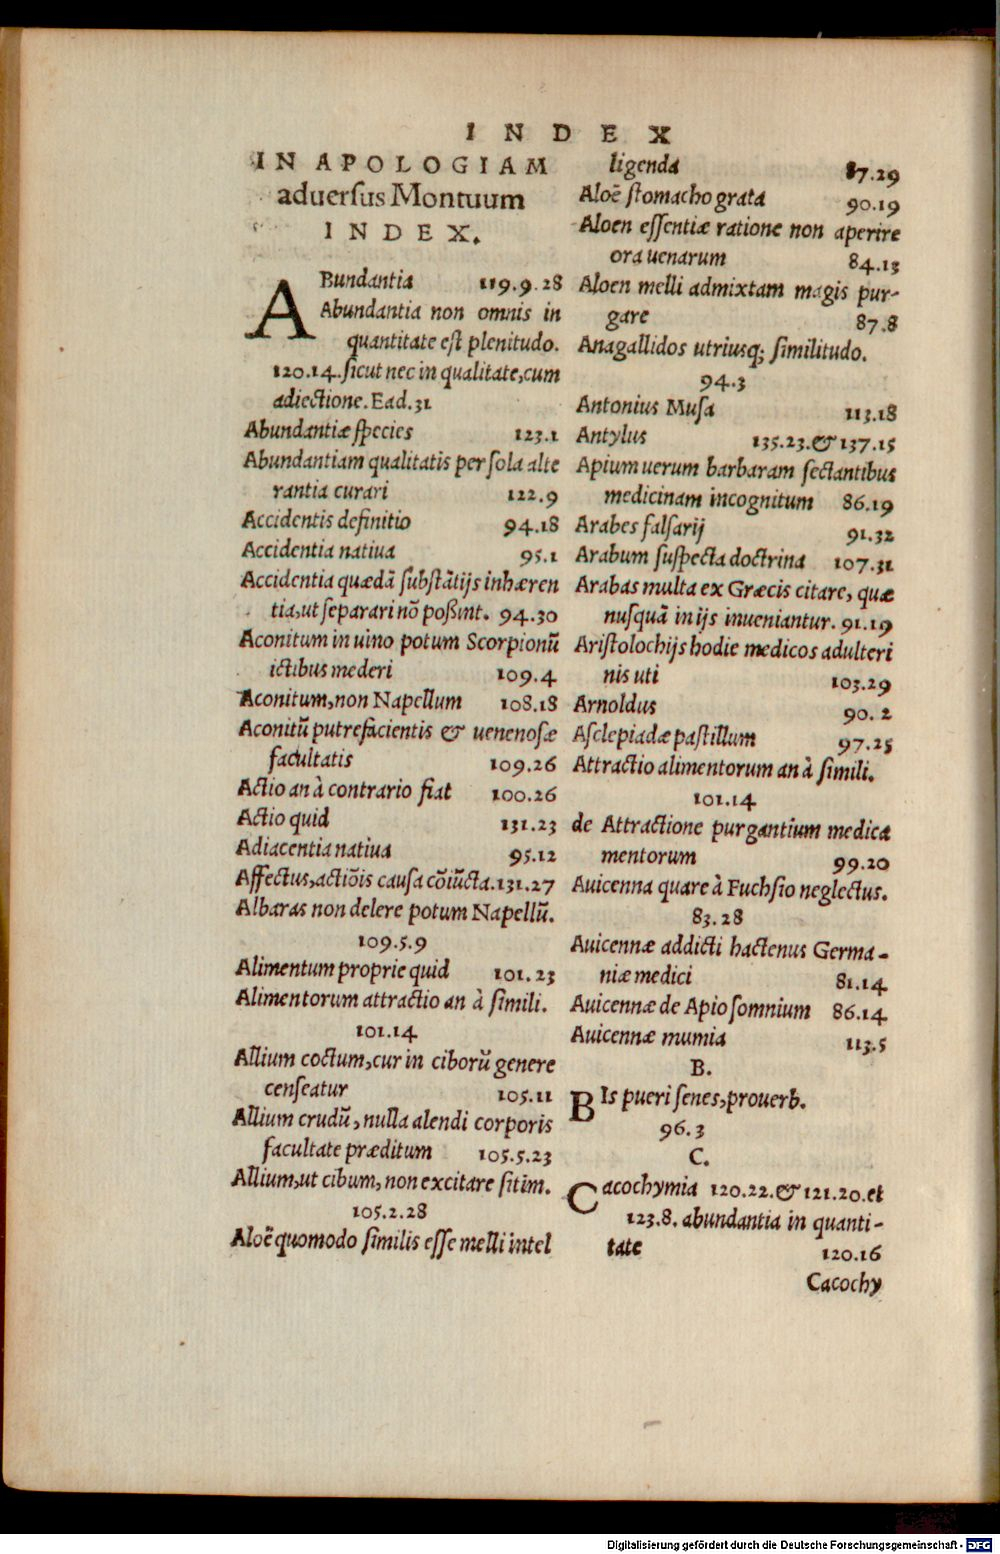 INDEX
IN APOLOGIAM
aduersus Montuum
INDEX.
ABundantia 119.9.28
Abundantia non omnis in
quantitate est plenitudo.
120.14. sicut nec in qualitate, cum
adiectione. Ead. 31
Abundantiæ species 123.1
Abundantiam qualitatis per sola alte
rantia curari 122.9
Accidentis definitio 94.18
Accidentia natiua 95.1
Accidentia quædā substātijs inhæren
tia, ut separari nō poßint. 94.30
Aconitum in uino potum Scorpionū
ictibus mederi 109.4
Aconitum, non Napellum 108.18
Aconitū putrefacientis & uenenosæ
facultatis 109.26
Actio an à contrario fiat 100.26
Actio quid 131.23
Adiacentia natiua 95.12
Affectus, actiōis causa cōiūcta. 131.27
Albaras non delere potum Napellū.
109.5.9
Alimentum proprie quid 101.23
Alimentorum attractio an à simili.
101.14
Allium coctum, cur in ciborū genere
censeatur 105.11
Allium crudū, nulla alendi corporis
facultate præditum 105.5.23
Allium, ut cibum, non excitare sitim.
105.2.28
Aloē quomodo similis esse melli intel
ligenda 87.29
Aloē stomacho grata 90.19
Aloen essentiæ ratione non aperire
ora uenarum 84.13
Aloen melli admixtam magis pur-
gare 87.8
Anagallidos utriusq; similitudo.
94.3
Antonius Musa 113.18
Antylus 135.23. & 137.15
Apium uerum barbaram sectantibus
medicinam incognitum 86.19
Arabes falsarij 91.32
Arabum suspecta doctrina 107.31
Arabas multa ex Græcis citare, quæ
nusquā in ijs inueniantur. 91.19
Aristolochijs hodie medicos adulteri
nis uti 103.29
Arnoldus 90.2
Asclepiadæ pastillum 97.25
Attractio alimentorum an à simili.
101.14
de Attractione purgantium medica
mentorum 99.20
Auicenna quare à Fuchsio neglectus.
83.28
Auicennæ addicti hactenus Germa-
niæ medici 81.14
Auicennæ de Apio somnium 86.14
Auicennæ mumia 113.5
B.
BIs pueri senes, prouerb.
96.3
C.
Cacochymia 120.22. & 121.20. et
123.8. abundantia in quanti-
tate 120.16
Cacochy
Digitalisierung gefördert durch die Deutsche Forschungsgemeinschaft - DFG